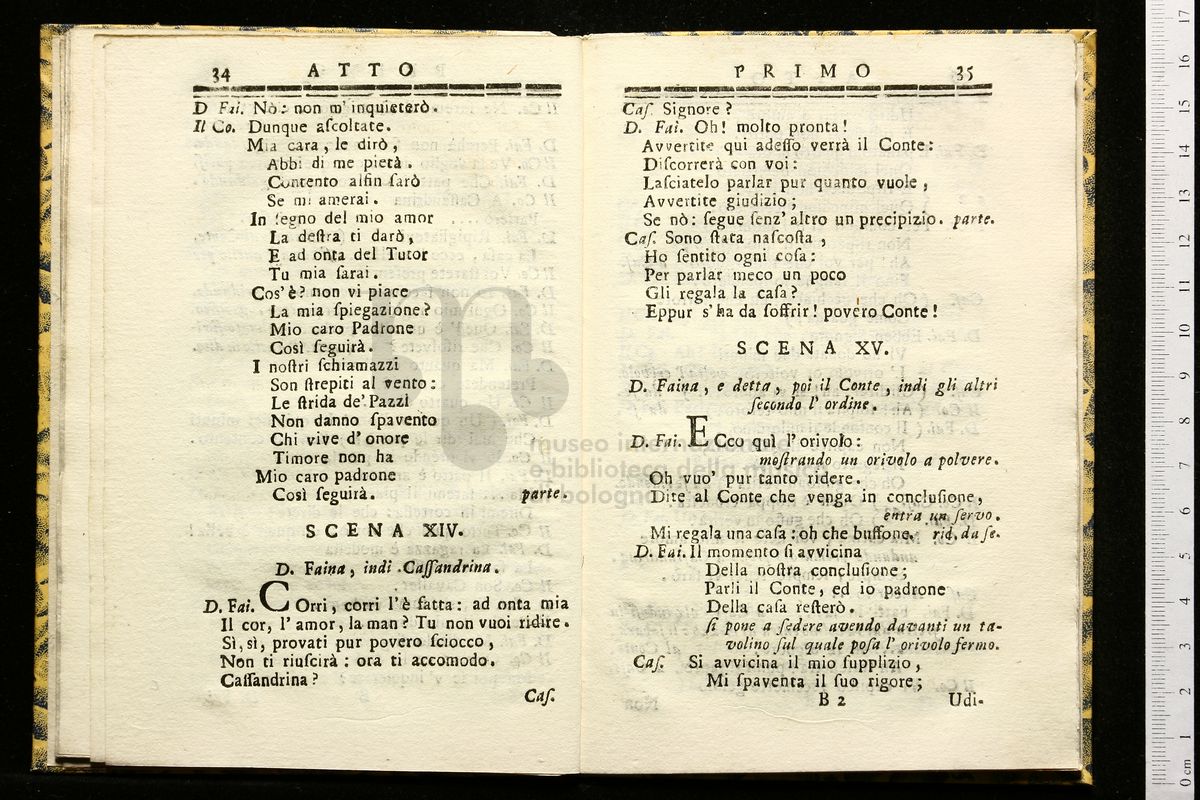 34 ATTO
D Fai. Nò: non m' inquieterò.
Il Co. Dunque aſcoltate.
Mia cara, le dirò,
Abbi di me pietà.
Contento alfin ſarò
Se mi amerai.
In ſegno del mio amor
La deſtra ti darò,
E ad onta del Tutor
Tu mia ſarai.
Cos' è? non vi piace
La mia ſpiegazione?
Mio caro Padrone
Così ſeguirà.
I noſtri ſchiamazzi
Son ſtrepiti al vento:
Le ſtrida de' Pazzi
Non danno ſpavento
Chi vive d' onore
Timore non ha
Mio caro padrone
Così ſeguirà. parte.
SCENA XIV.
D. Faina, indi Caſſandrina.
D. Fai. COrri, corri l' è fatta: ad onta mia
Il cor, l' amor, la man? Tu non vuoi ridire.
Sì, sì, provati pur povero ſciocco,
Non ti riuſcirà: ora ti accomodo.
Caſſandrina?
Caſ.
PRIMO 35
Caſ. Signore?
D. Fai. Oh! molto pronta!
Avvertite qui adeſſo verrà il Conte:
Diſcorrerà con voi:
Laſciatelo parlar pur quanto vuole,
Avvertite giudizio;
Se nò: ſegue ſenz' altro un precipizio. parte.
Caſ. Sono ſtata naſcoſta,
Ho ſentito ogni coſa:
Per parlar meco un poco
Gli regala la caſa?
Eppur s' ha da ſoffrir! povero Conte!
SCENA XV.
D. Faina, e detta, poi il Conte, indi gli altri
ſecondo l' ordine.
D. Fai. ECco quì l' orivolo:
moſtrando un orivolo a polvere.
Oh vuo' pur tanto ridere.
Dite al Conte che venga in concluſione,
entra un ſervo.
Mi regala una caſa: oh che buffone. rid. da ſe.
D. Fai. Il momento ſi avvicina
Della noſtra concluſione;
Parli il Conte, ed io padrone
Della caſa reſterò.
ſi pone a ſedere avendo davanti un ta-
volino ſul quale poſa l' orivolo fermo.
Caſ. Si avvicina il mio ſupplizio,
Mi ſpaventa il ſuo rigore;
B 2 Udi-
museo internazionale
e biblioteca della musica
di bologna
0 cm 1 2 3 4 5 6 7 8 9 10 11 12 13 14 15 16 17